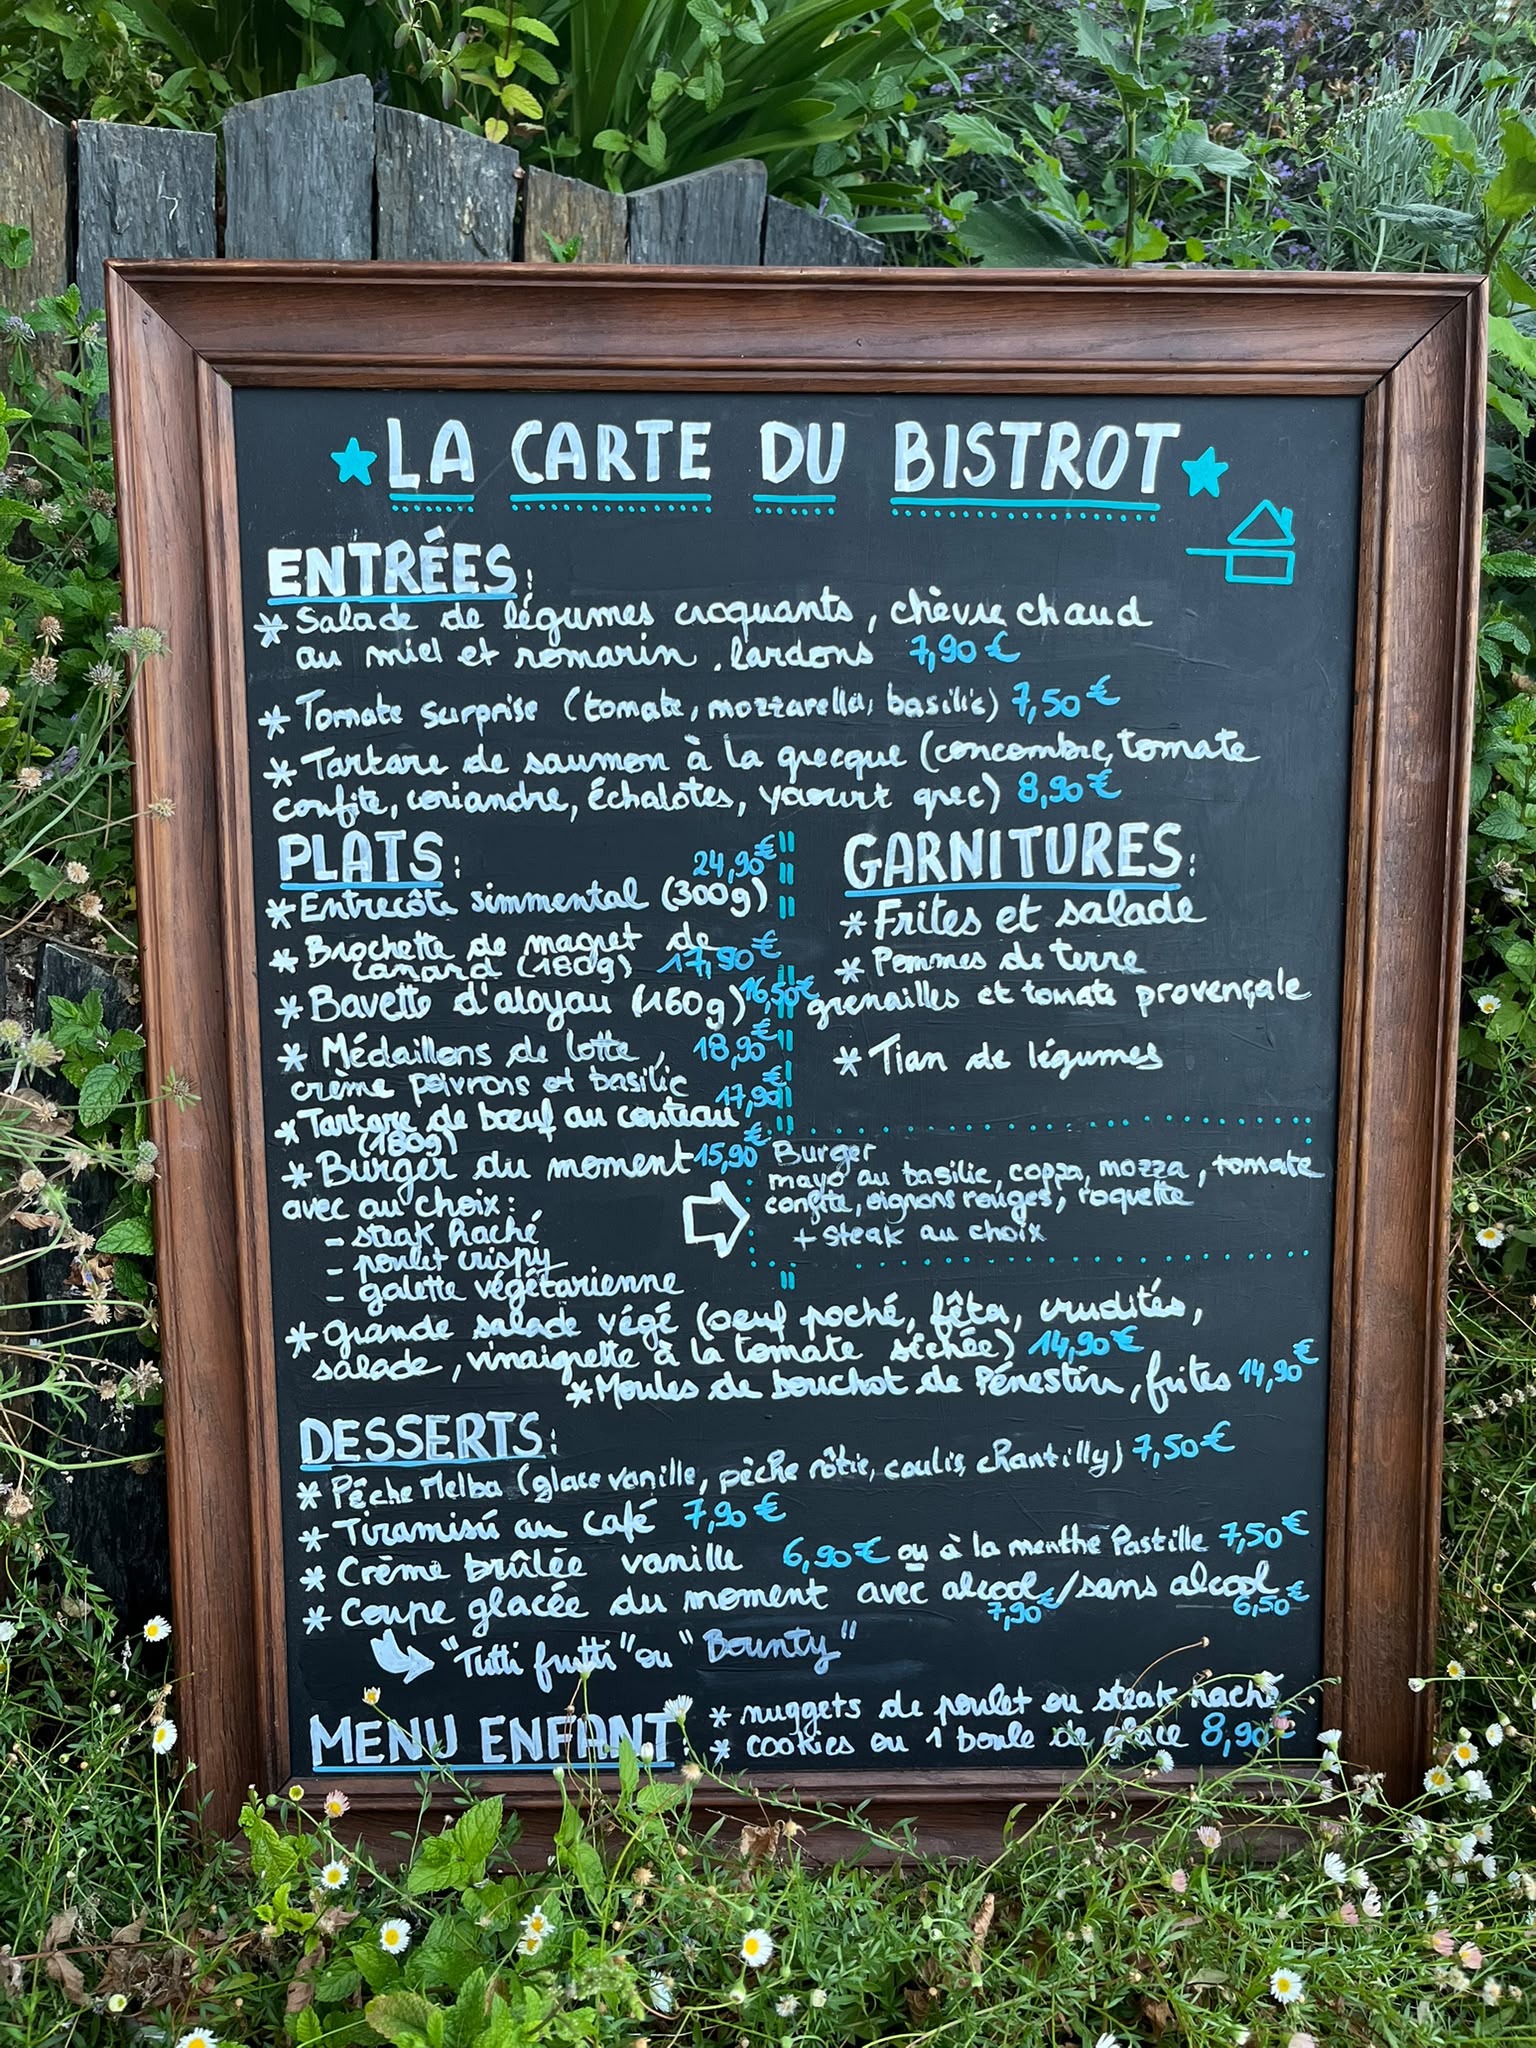 LA CARTE DU BISTROT
ENTRÉES:
* Salade de légumes croquants, chèvre chaud
au miel et romarin, lardons 7,90€
* Tomate surprise (tomate, mozzarella, basilic) 7,50€
* Tartare de saumon à la grecque (concombre, tomate
confite, coriandre, échalotes, yaourt grec) 8,90€
PLATS:
24,90€
* Entrecôte simmental (300g)
* Brochette de magret de
canard (180g) 17,90€
* Bavette d'aloyau (160g) 16,50€
* Médaillons de lotte, 18,90€
crème poivrons et basilic
17,90€
* Tartare de bœuf au couteau
(180g)
* Burger du moment 15,90€
avec au choix:
- steak haché
- poulet crispy
- galette végétarienne
GARNITURES:
* Frites et salade
* Pommes de terre
grenailles et tomate provençale
* Tian de légumes
Burger
mayo au basilic, coppa, mozza, tomate
confite, oignons rouges, roquette
+ steak au choix
* Grande salade végé (oeuf poché, fêta, crudités,
salade, vinaigrette à la tomate séchée) 14,90€
* Moules de bouchot de Pénestin, frites 14,90€
DESSERTS:
* Pêche Melba (glace vanille, pêche rôtie, coulis, chantilly) 7,50€
* Tiramisú au café 7,90€
* Crème brûlée vanille 6,90€ ou à la menthe Pastille 7,50€
* Coupe glacée du moment avec alcool / sans alcool
7,90€ 6,50€
"Tutti frutti" ou "Bounty"
MENU ENFANT:
* nuggets de poulet ou steak haché
* cookies ou 1 boule de glace 8,90€